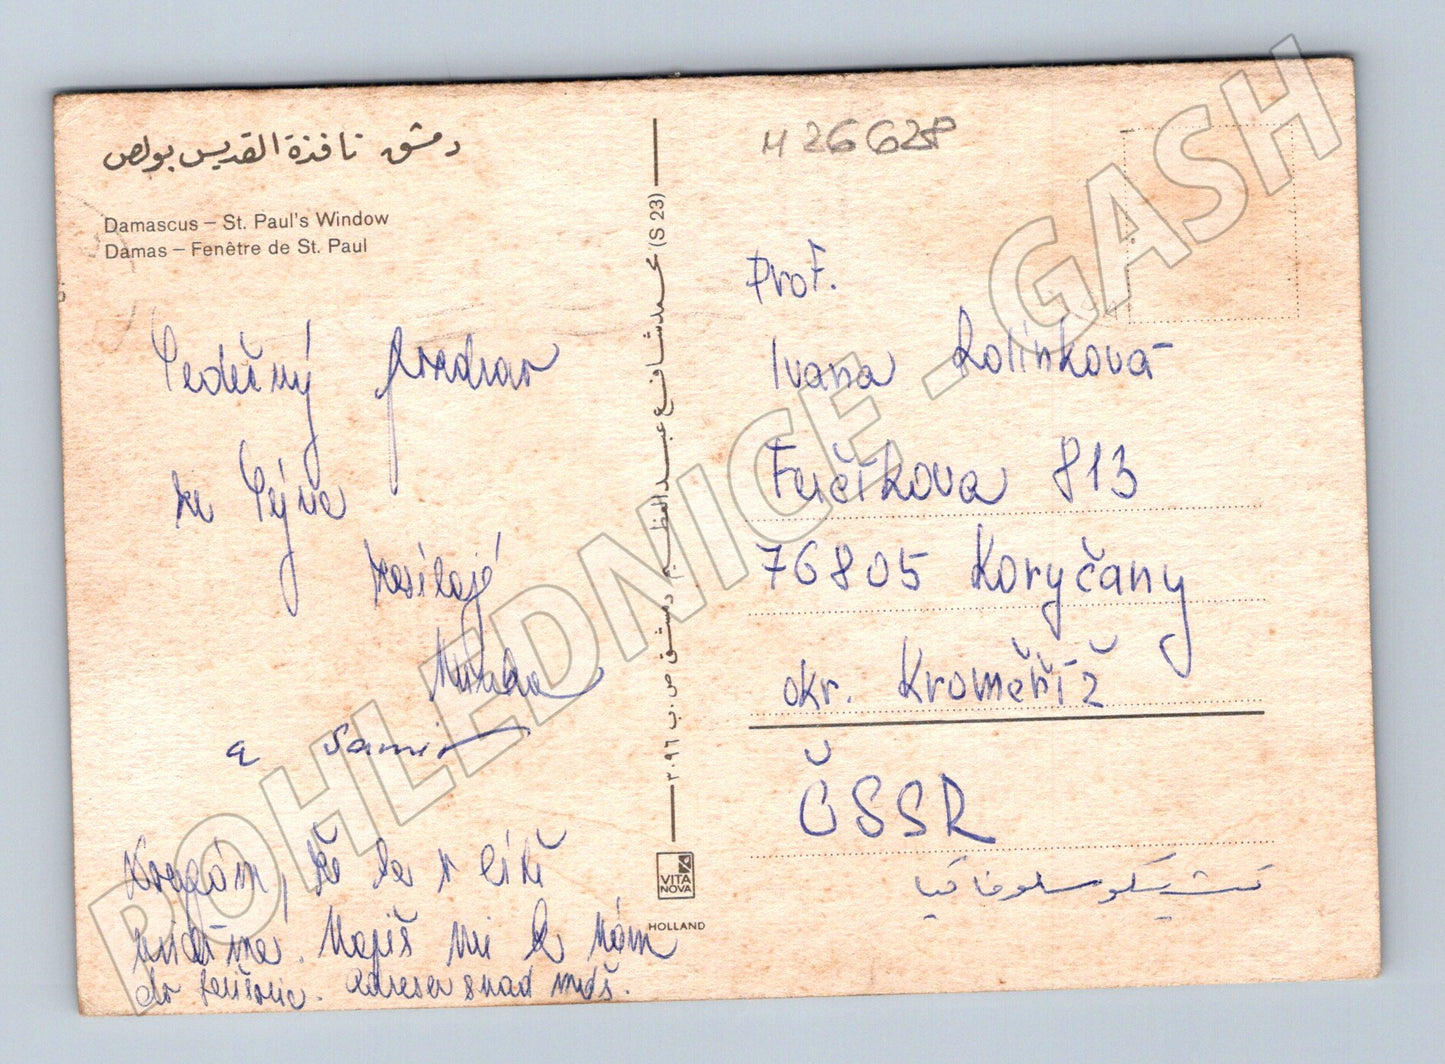 دمشق نافذة القديس بولص
Damascus – St. Paul's Window
Damas – Fenêtre de St. Paul
Srdečný pozdrav
ze Sýrie
zasílají
a Samir
že se v létě
uvidíme. Napiš mi k nám
do . Adresu snad máš.
محمد شافع عبد العظيم دمشق ص.ب ٢٠٩٦ (S 23)
VITA
NOVA
HOLLAND
H 26628
Prof.
Ivana Rolínková
Fučíkova 813
76805 Koryčany
okr. Kroměříž
ČSSR
تشيكوسلوفاكيا
POHLEDNICE - GASH